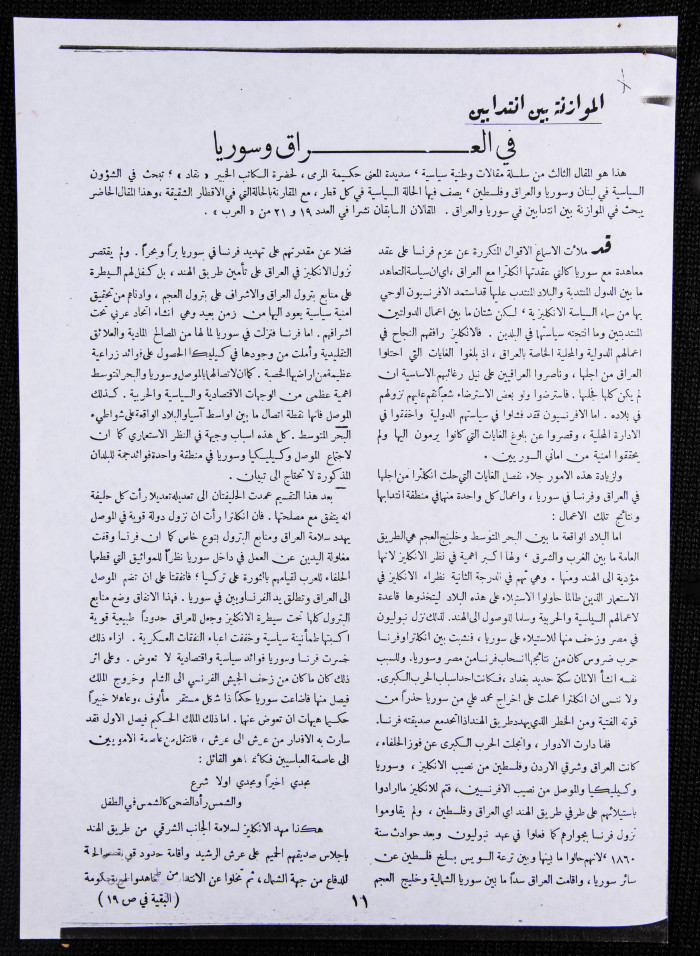 الموازنة بين انتدابين
في العـــراق وسوريا
هذا هو المقال الثالث من سلسلة مقالات وطنية سياسية ، سديدة المعنى حكيمة المرمى ، لحضرة الكاتب الخبير « نقاد » ، تبحث في الشؤون
السياسية في لبنان وسوريا والعراق وفلسطين ، يصف فيها الحالة السياسية في كل قطر ، مع المقارنة بالحالة التي في الاقطار الشقيقة ، وهذا المقال الحاضر
يبحث في الموازنة بين انتدابين في سوريا والعراق . المقالان السابقان نشرا في العدد ١٩ و ٢١ من « العرب » .
قد ملأت الاسماع الاقوال المتكررة عن عزم فرنسا على عقد
معاهدة مع سوريا كالتي عقدتها انكلترا مع العراق ، اي ان سياسة التعاهد
ما بين الدول المنتدبة والبلاد المنتدب عليها قد استمد الافرنسيون الوحي
بها من سماء السياسة الانكليزية ، لكن شتان ما بين اعمال الدولتين
المنتدبتين وما انتجته سياستهما في البلدين . فالانكليز رافقهم النجاح في
اعمالهم الدولية والمحلية الخاصة بالعراق ، اذ بلغوا الغايات التي احتلوا
العراق من اجلها ، وناصروا العراقيين على نيل رغائبهم الاساسية ان
لم يكن كلها فجلها . فاسترضوا ولو بعض الاسترضاء شعباً نقم عليهم نزولهم
في بلاده . اما الافرنسيون فقد فشلوا في سياستهم الدولية واخفقوا في
الادارة المحلية ، وقصروا عن بلوغ الغايات التي كانوا يرمون اليها ولم
يحققوا امنية من اماني السوريين .
ولزيادة هذه الامور جلاء نفصل الغايات التي حلت انكلترا من اجلها
في العراق وفرنسا في سوريا ، واعمال كل واحدة منهما في منطقة انتدابها
ونتائج تلك الاعمال :
اما البلاد الواقعة ما بين البحر المتوسط وخليج العجم هي الطريق
العامة ما بين الغرب والشرق ، ولها اكبر اهمية في نظر الانكليز لانها
مؤدية الى الهند ومنها . وهي تهم في الدرجة الثانية نظراء الانكليز في
الاستعمار الذين طالما حاولوا الاستيلاء على هذه البلاد ليتخذوها قاعدة
لاعمالهم السياسية والحربية وسلما للوصول الى الهند . لذلك نزل نبوليون
في مصر وزحف منها للاستيلاء على سوريا ، فنشبت بين انكلترا وفرنسا
حرب ضروس كان من نتائجها انسحاب فرنسا من مصر وسوريا . وللسبب
نفسه انشأ الالمان سكة حديد بغداد ، فكانت احد اسباب الحرب الكبرى .
ولا ننسى ان انكلترا عملت على اخراج محمد علي من سوريا حذراً من
قوته الفتية ومن الخطر الذي يهدد طريق الهند اذا اتحد مع صديقته فرنسا .
فلما دارت الادوار ، وانجلت الحرب الكبرى عن فوز الحلفاء ،
كانت العراق وشرقي الاردن وفلسطين من نصيب الانكليز ، وسوريا
وكيليكيا والموصل من نصيب الافرنسيين ، فتم للانكليز ما ارادوا
باستيلائهم على طرفي طريق الهند اي العراق وفلسطين ، ولم يقاوموا
نزول فرنسا بجوارهم كما فعلوا في عهد نبوليون وبعد حوادث سنة
١٨٦٠ لانهم حالوا ما بينها وبين ترعة السويس بسلخ فلسطين عن
سائر سوريا ، واقامت العراق سداً ما بين سوريا الشمالية وخليج العجم
فضلا عن مقدرتهم على تهديد فرنسا في سوريا براً وبحراً . ولم يقتصر
نزول الانكليز في العراق على تأمين طريق الهند ، بل كفل لهم السيطرة
على منابع بترول العراق والاشراف على بترول العجم ، وادناهم من تحقيق
امنية سياسية يعود اليها من زمن بعيد وهي انشاء اتحاد عربي تحت
اشرافهم . اما فرنسا فنزلت في سوريا لما لها من المصالح المادية والعلائق
التقليدية وأملت من وجودها في كيليكيا الحصول على فوائد زراعية
عظيمة من اراضيها الخصبة . كما ان لاتصالها بالموصل وسوريا والبحر المتوسط
اهمية عظمى من الوجهات الاقتصادية والسياسية والحربية . كذلك
الموصل فانها نقطة اتصال ما بين اواسط آسيا والبلاد الواقعة على شواطيء
البحر المتوسط . كل هذه اسباب وجيهة في النظر الاستعماري كما ان
لاجتماع الموصل وكيليكيا وسوريا في منطقة واحدة فوائد جمة للبلدان
المذكورة لا تحتاج الى تبيان .
بعد هذا التقسيم عمدت الحليفتان الى تعديله تعديلا رأت كل حليفة
انه يتفق مع مصلحتها . فان انكلترا رأت ان نزول دولة قوية في الموصل
يهدد سلامة العراق ومنابع البترول بنوع خاص كما ان فرنسا وقفت
مغلولة اليدين عن العمل في داخل سوريا نظراً للمواثيق التي قطعها
الحلفاء للعرب لقيامهم بالثورة على تركيا ، فاتفقتا على ان تضم الموصل
الى العراق وتطلق يد الفرنساويين في سوريا . فهذا الاتفاق وضع منابع
البترول كلها تحت سيطرة الانكليز وجعل للعراق حدوداً طبيعية قوية
اكسبتها طمأنينة سياسية وخففت اعباء النفقات العسكرية . ازاء ذلك
خسرت فرنسا وسوريا فوائد سياسية واقتصادية لا تعوض . وعلى اثر
ذلك كان ما كان من زحف الجيش الفرنسي الى الشام وخروج الملك
فيصل منها فاضاعت سوريا حكماً ذا شكل مستقر مألوف ، وعاهلا خبيراً
حكيما هيهات ان تعوض عنها . اما ذلك الملك الحكيم فيصل الاول فقد
سارت به الاقدار من عرش الى عرش ، فانتقل من عاصمة الامويين
الى عاصمة العباسيين فكأنما هو القائل :
مجدي اخيراً ومجدي اولا شرع
والشمس رأد الضحى كالشمس في الطفل
هكذا مهد الانكليز لسلامة الجانب الشرقي من طريق الهند
باجلاس صديقهم الحميم على عرش الرشيد واقامة حدود قوية
للدفاع من جهة الشمال ، ثم تخلوا عن الانتداب
( البقية في ص ١٩ )
١١